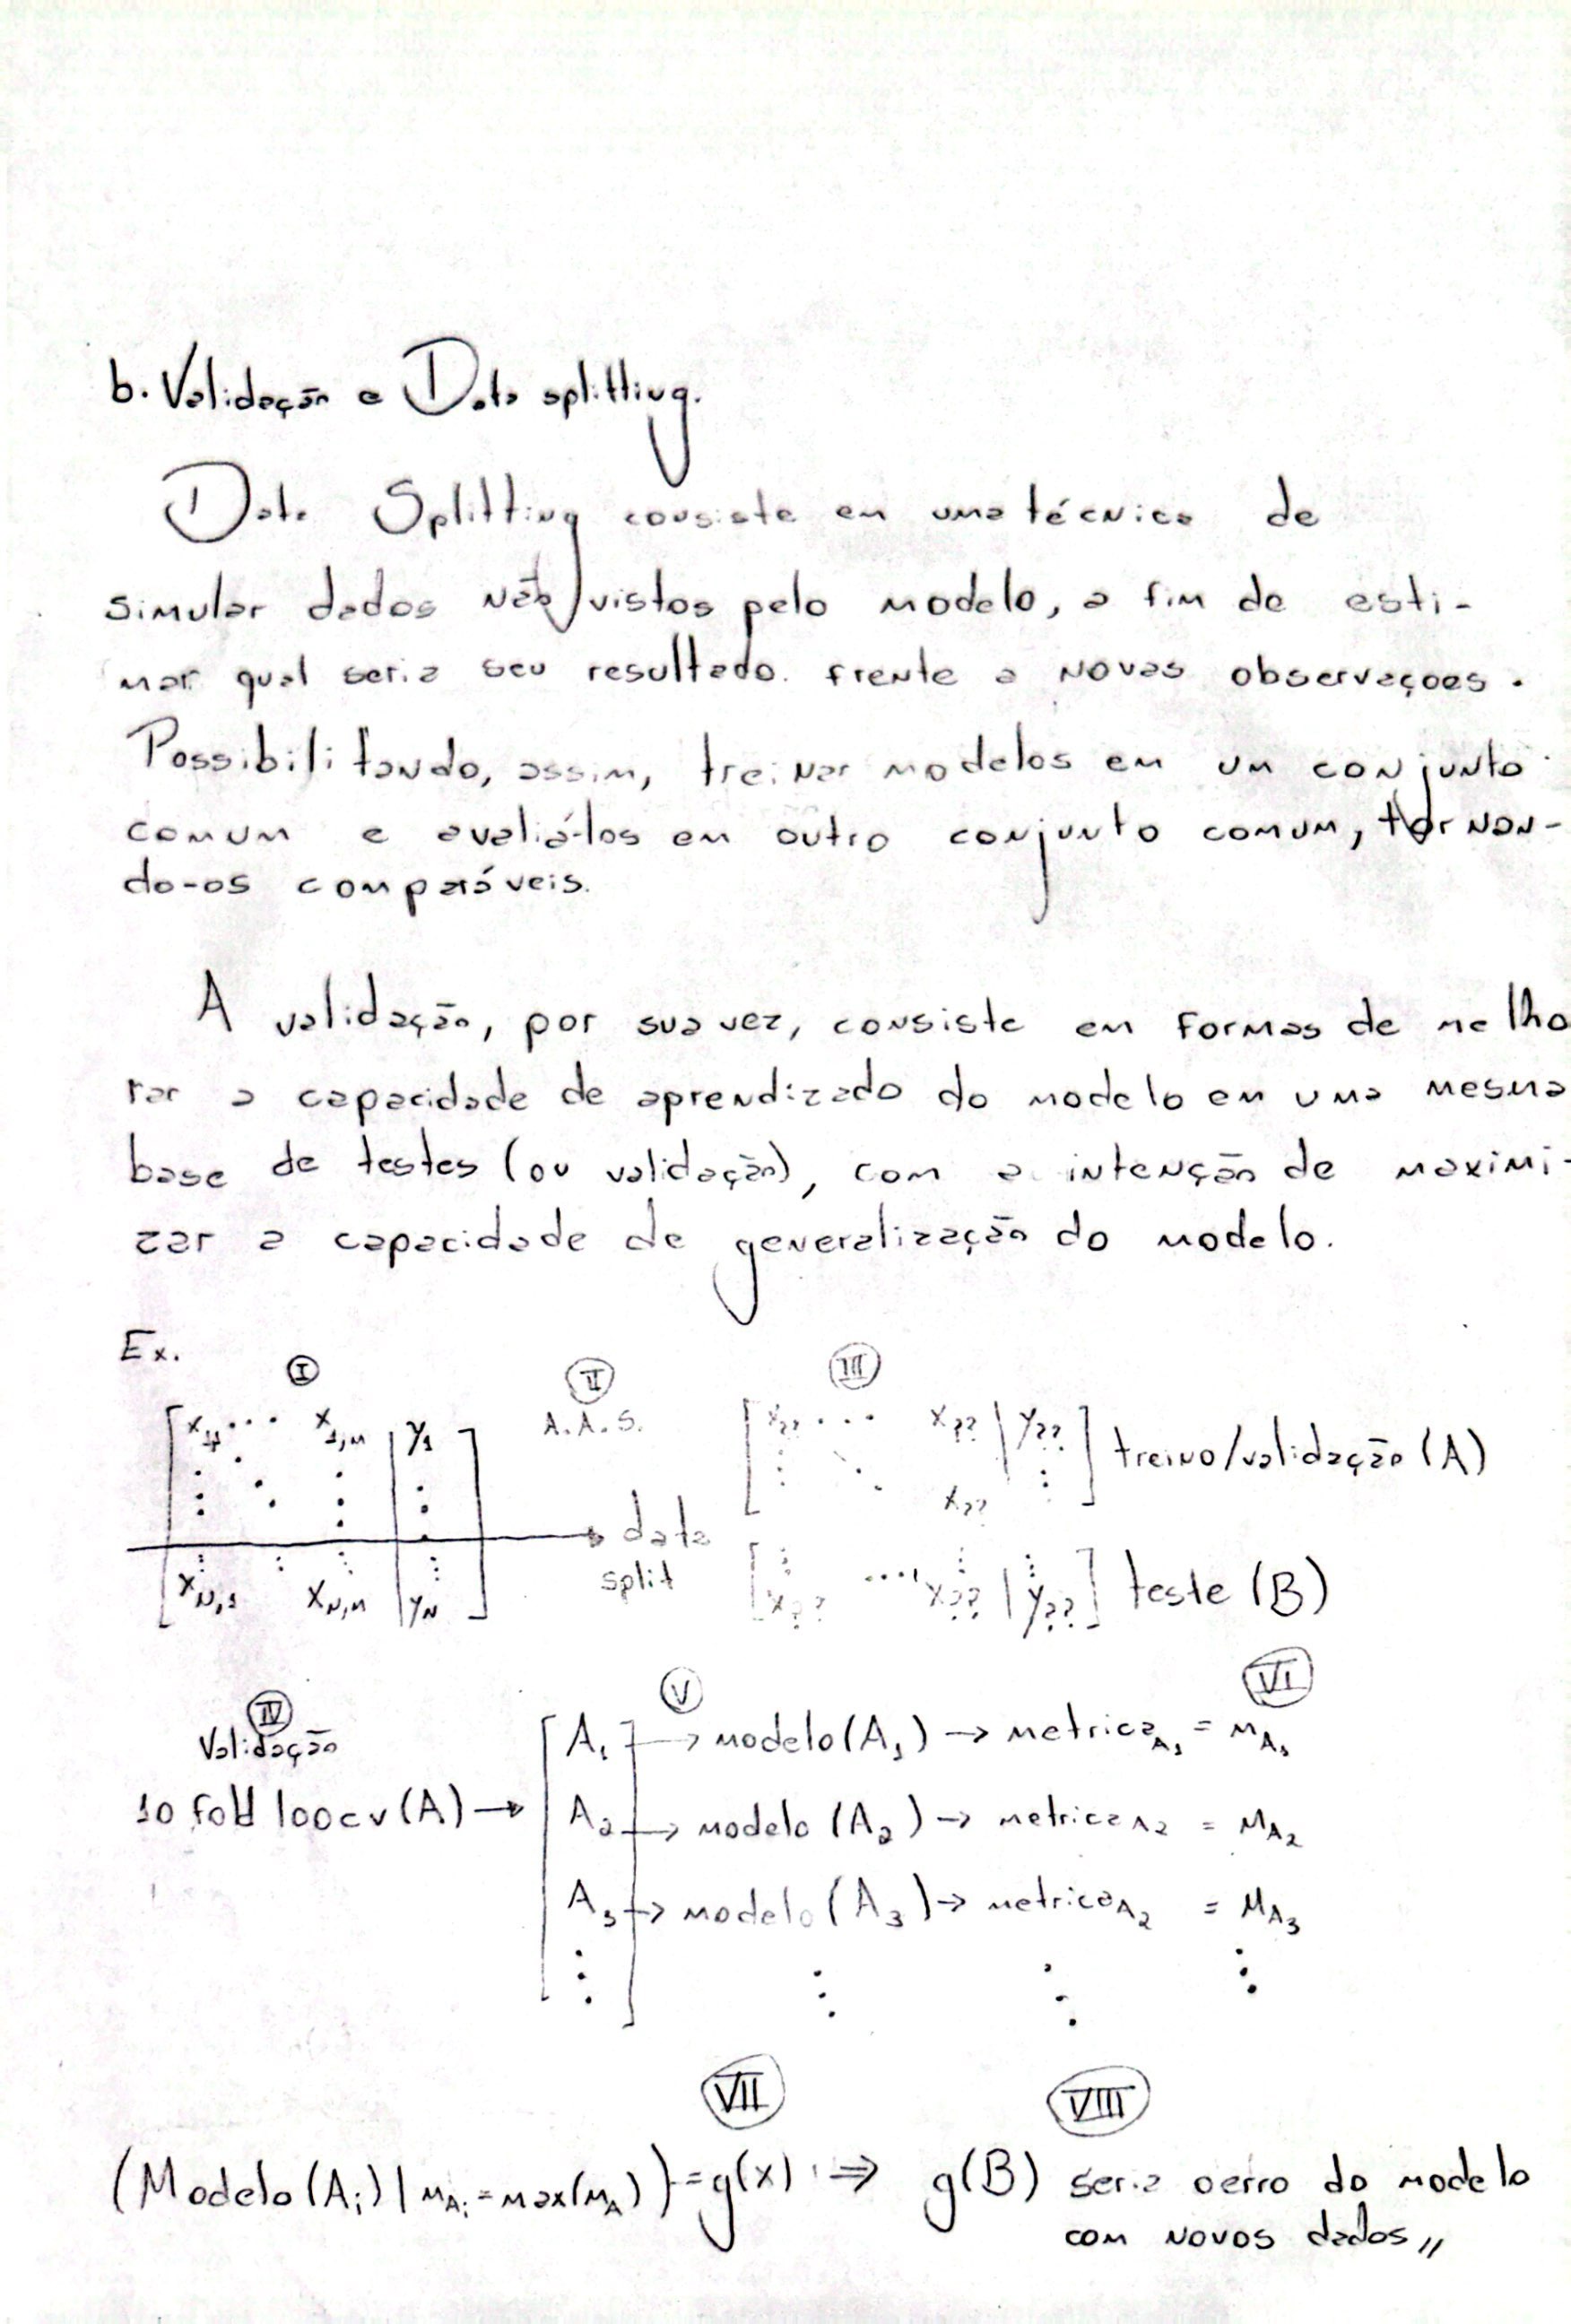 b. Validação e Data splitting.
Data Splitting consiste em uma técnica de
simular dados não vistos pelo modelo, a fim de esti-
mar qual seria seu resultado frente a novas observações.
Possibilitando, assim, treinar modelos em um conjunto
comum e avaliá-los em outro conjunto comum, tornan-
do-os comparáveis.
A validação, por sua vez, consiste em formas de melho
rar a capacidade de aprendizado do modelo em uma mesma
base de testes (ou validação), com a intenção de maximi-
zar a capacidade de generalização do modelo.
Ex.
I II III
A.A.S.
x11 ... x1,m | y1
xN,1 xN,m | yN
data
split
x?? ... x?? | y??
x??
treino/validação (A)
x?? .... x?? | y??
teste (B)
IV V VI
Validação
10 fold loocv (A) →
A1 → modelo (A1) → metricaA1 = mA1
A2 → modelo (A2) → metricaA2 = mA2
A3 → modelo (A3) → metricaA2 = mA3
VII VIII
(Modelo (Ai) | mAi = max(mA)) = g(x) ⇒ g(B) seria o erro do modelo
com novos dados,,